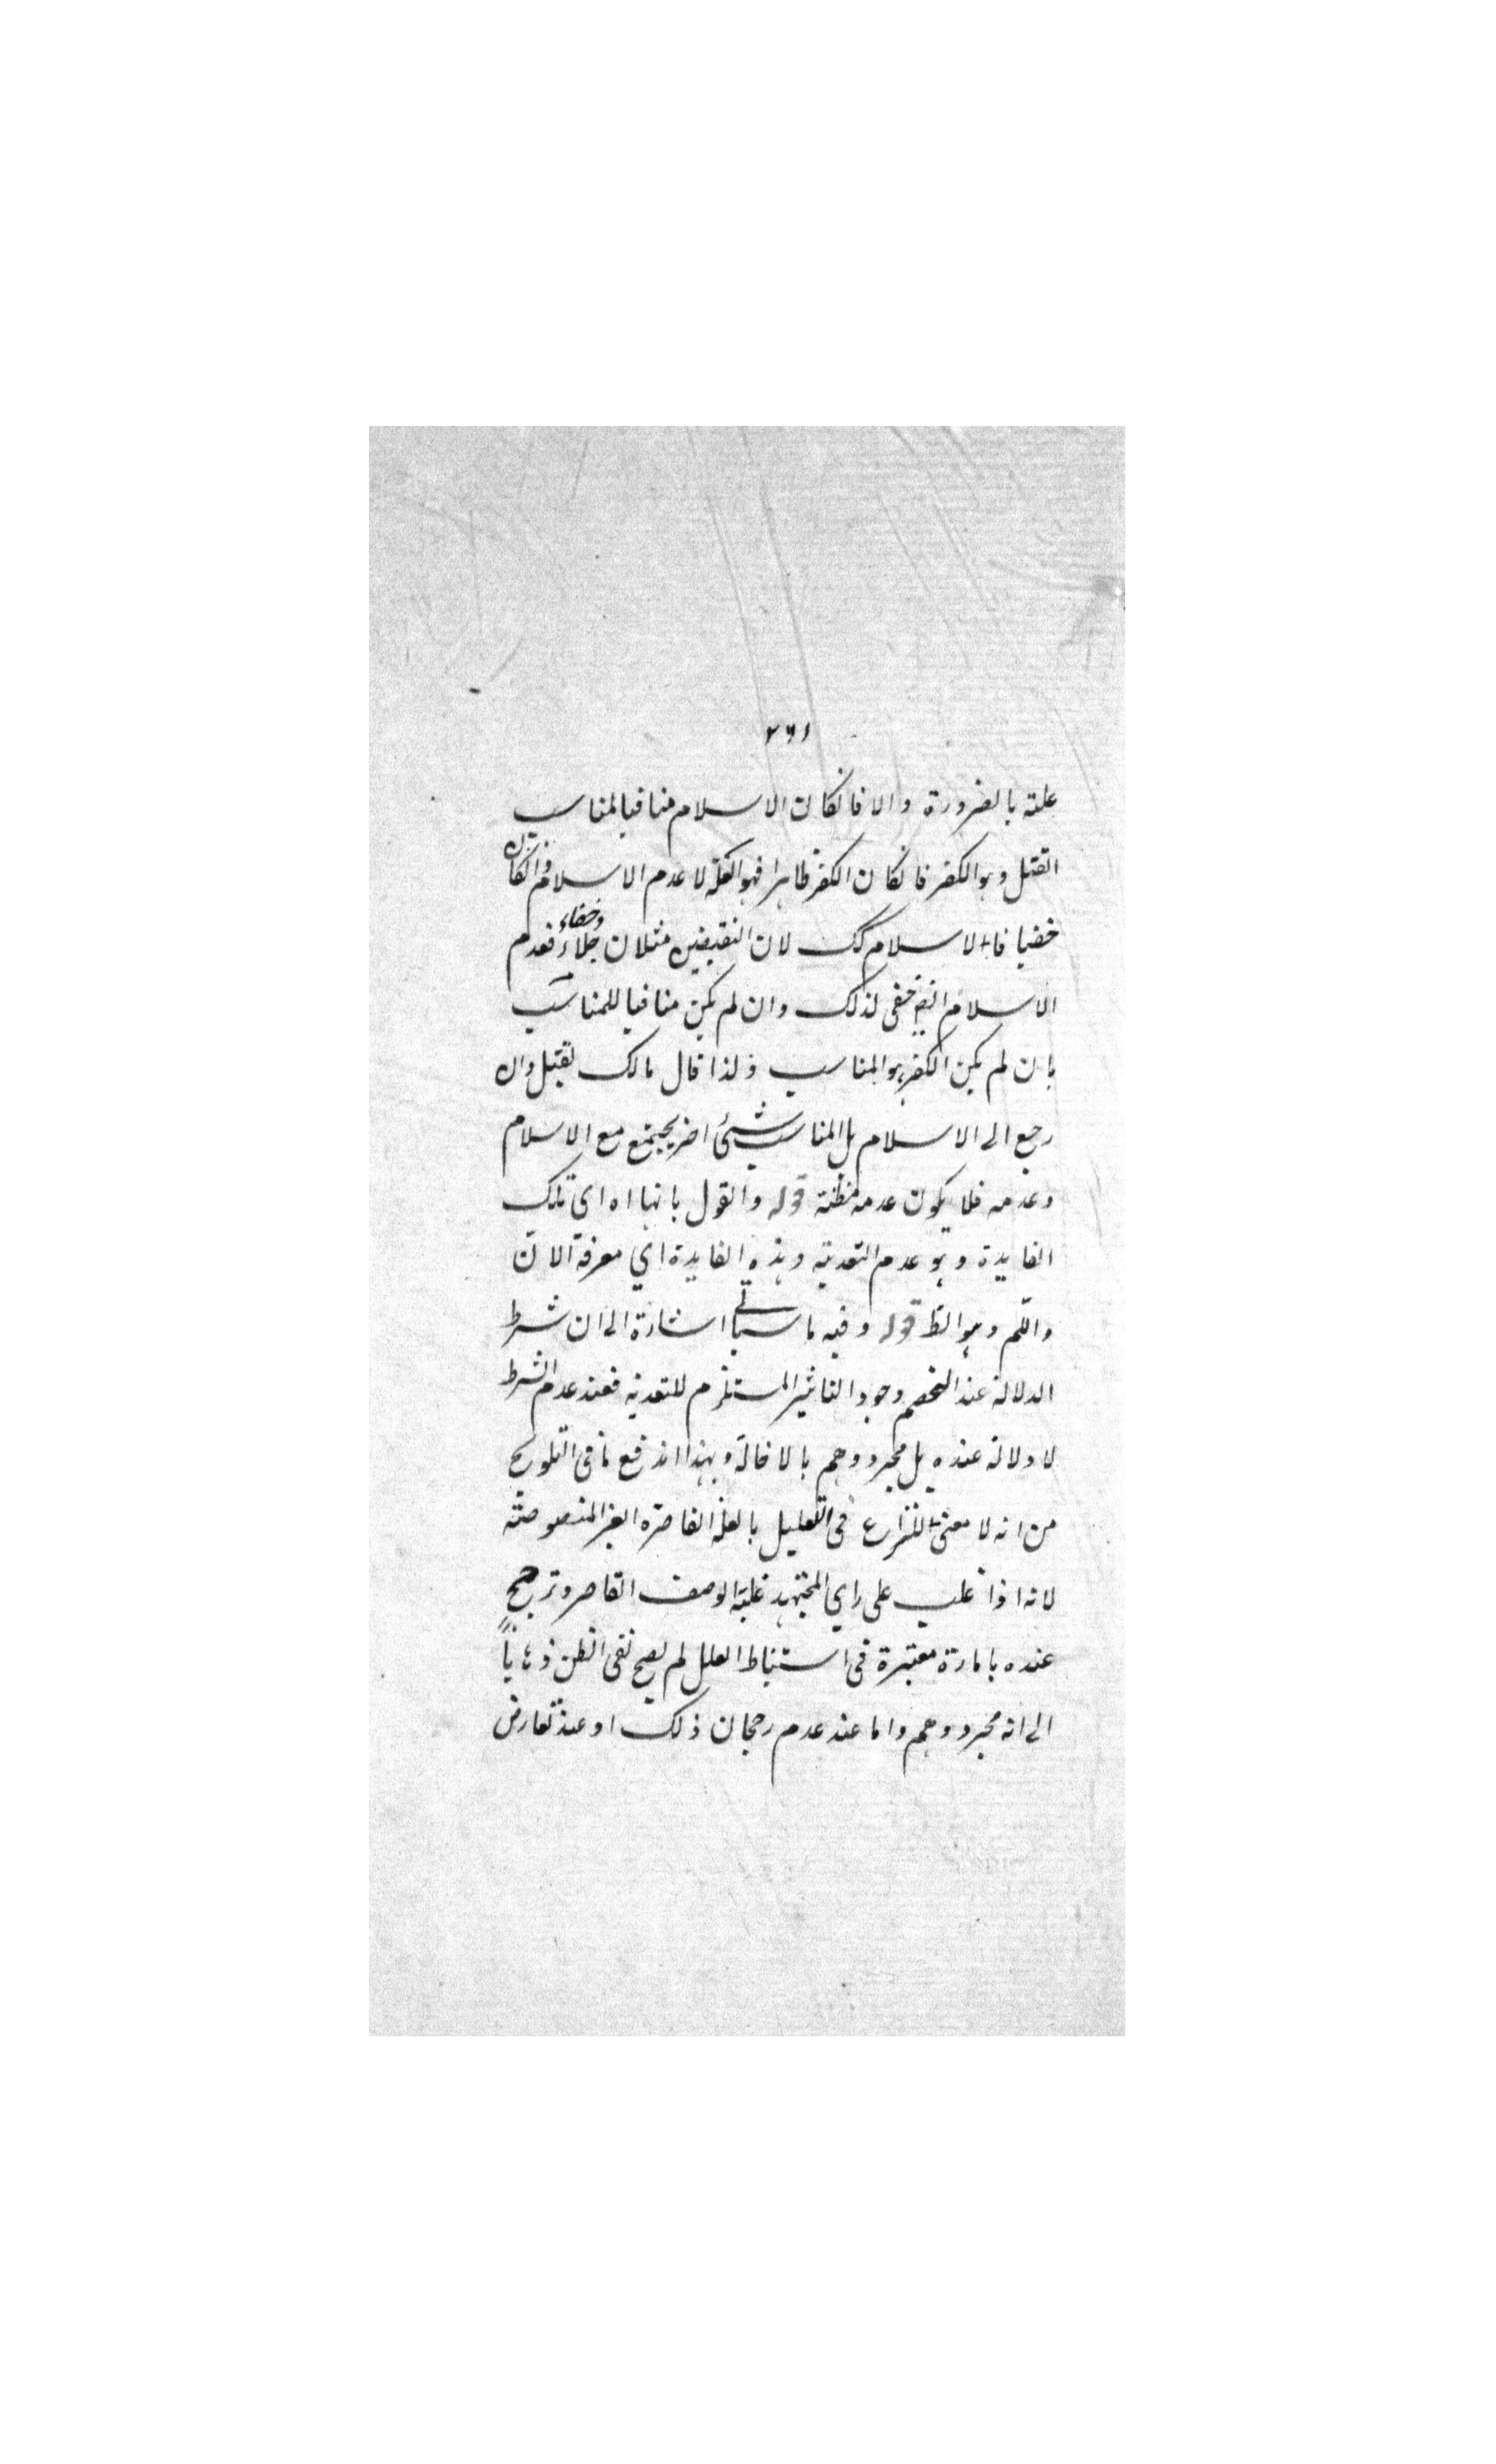 ٢٦١
علته بالضرورة والا فانكان الاسلام منافيا لمناسب
القتل وهو الكفر فانكان الكفر ظاهرا فهو العلة لا عدم الاسلام وانكان
خفيا فالاسلام كك لان النقيضين مثلان جلاء وخفاء فعدم
الاسلام ايضا خفى لذلك وان لم يكن منافيا للمناسب
بان لم يكن الكفر هو المناسب ولذا قال مالك يقتل وان
رجع الى الاسلام بل المناسب شئ اخر يجتمع مع الاسلام
وعدمه فلا يكون عدمه مظنة قوله والقول بانها اه اى تلك
الفايدة وهو عدم التعدية وهذه الفايدة اي معرفة الان
واللم وهو الظ قوله وفيه ما سياتى اشارة الى ان شرط
الدلالة عند الخصم وجود التاثير المستلزم للتعدية فعند عدم الشرط
لا دلالة عنده بل مجرد وهم بالاخالة وبهذا اندفع ما فى التلويح
من انه لا معنى للنزاع فى التعليل بالعلة القاصرة الغير المنصوصة
لانه اذا غلب على راي المجتهد علية الوصف القاصر وترجح
عنده بامارة معتبرة فى استنباط العلل لم يصح نفى الظن ذهابا
الى انه مجرد وهم واما عند عدم رجحان ذلك او عند تعارض